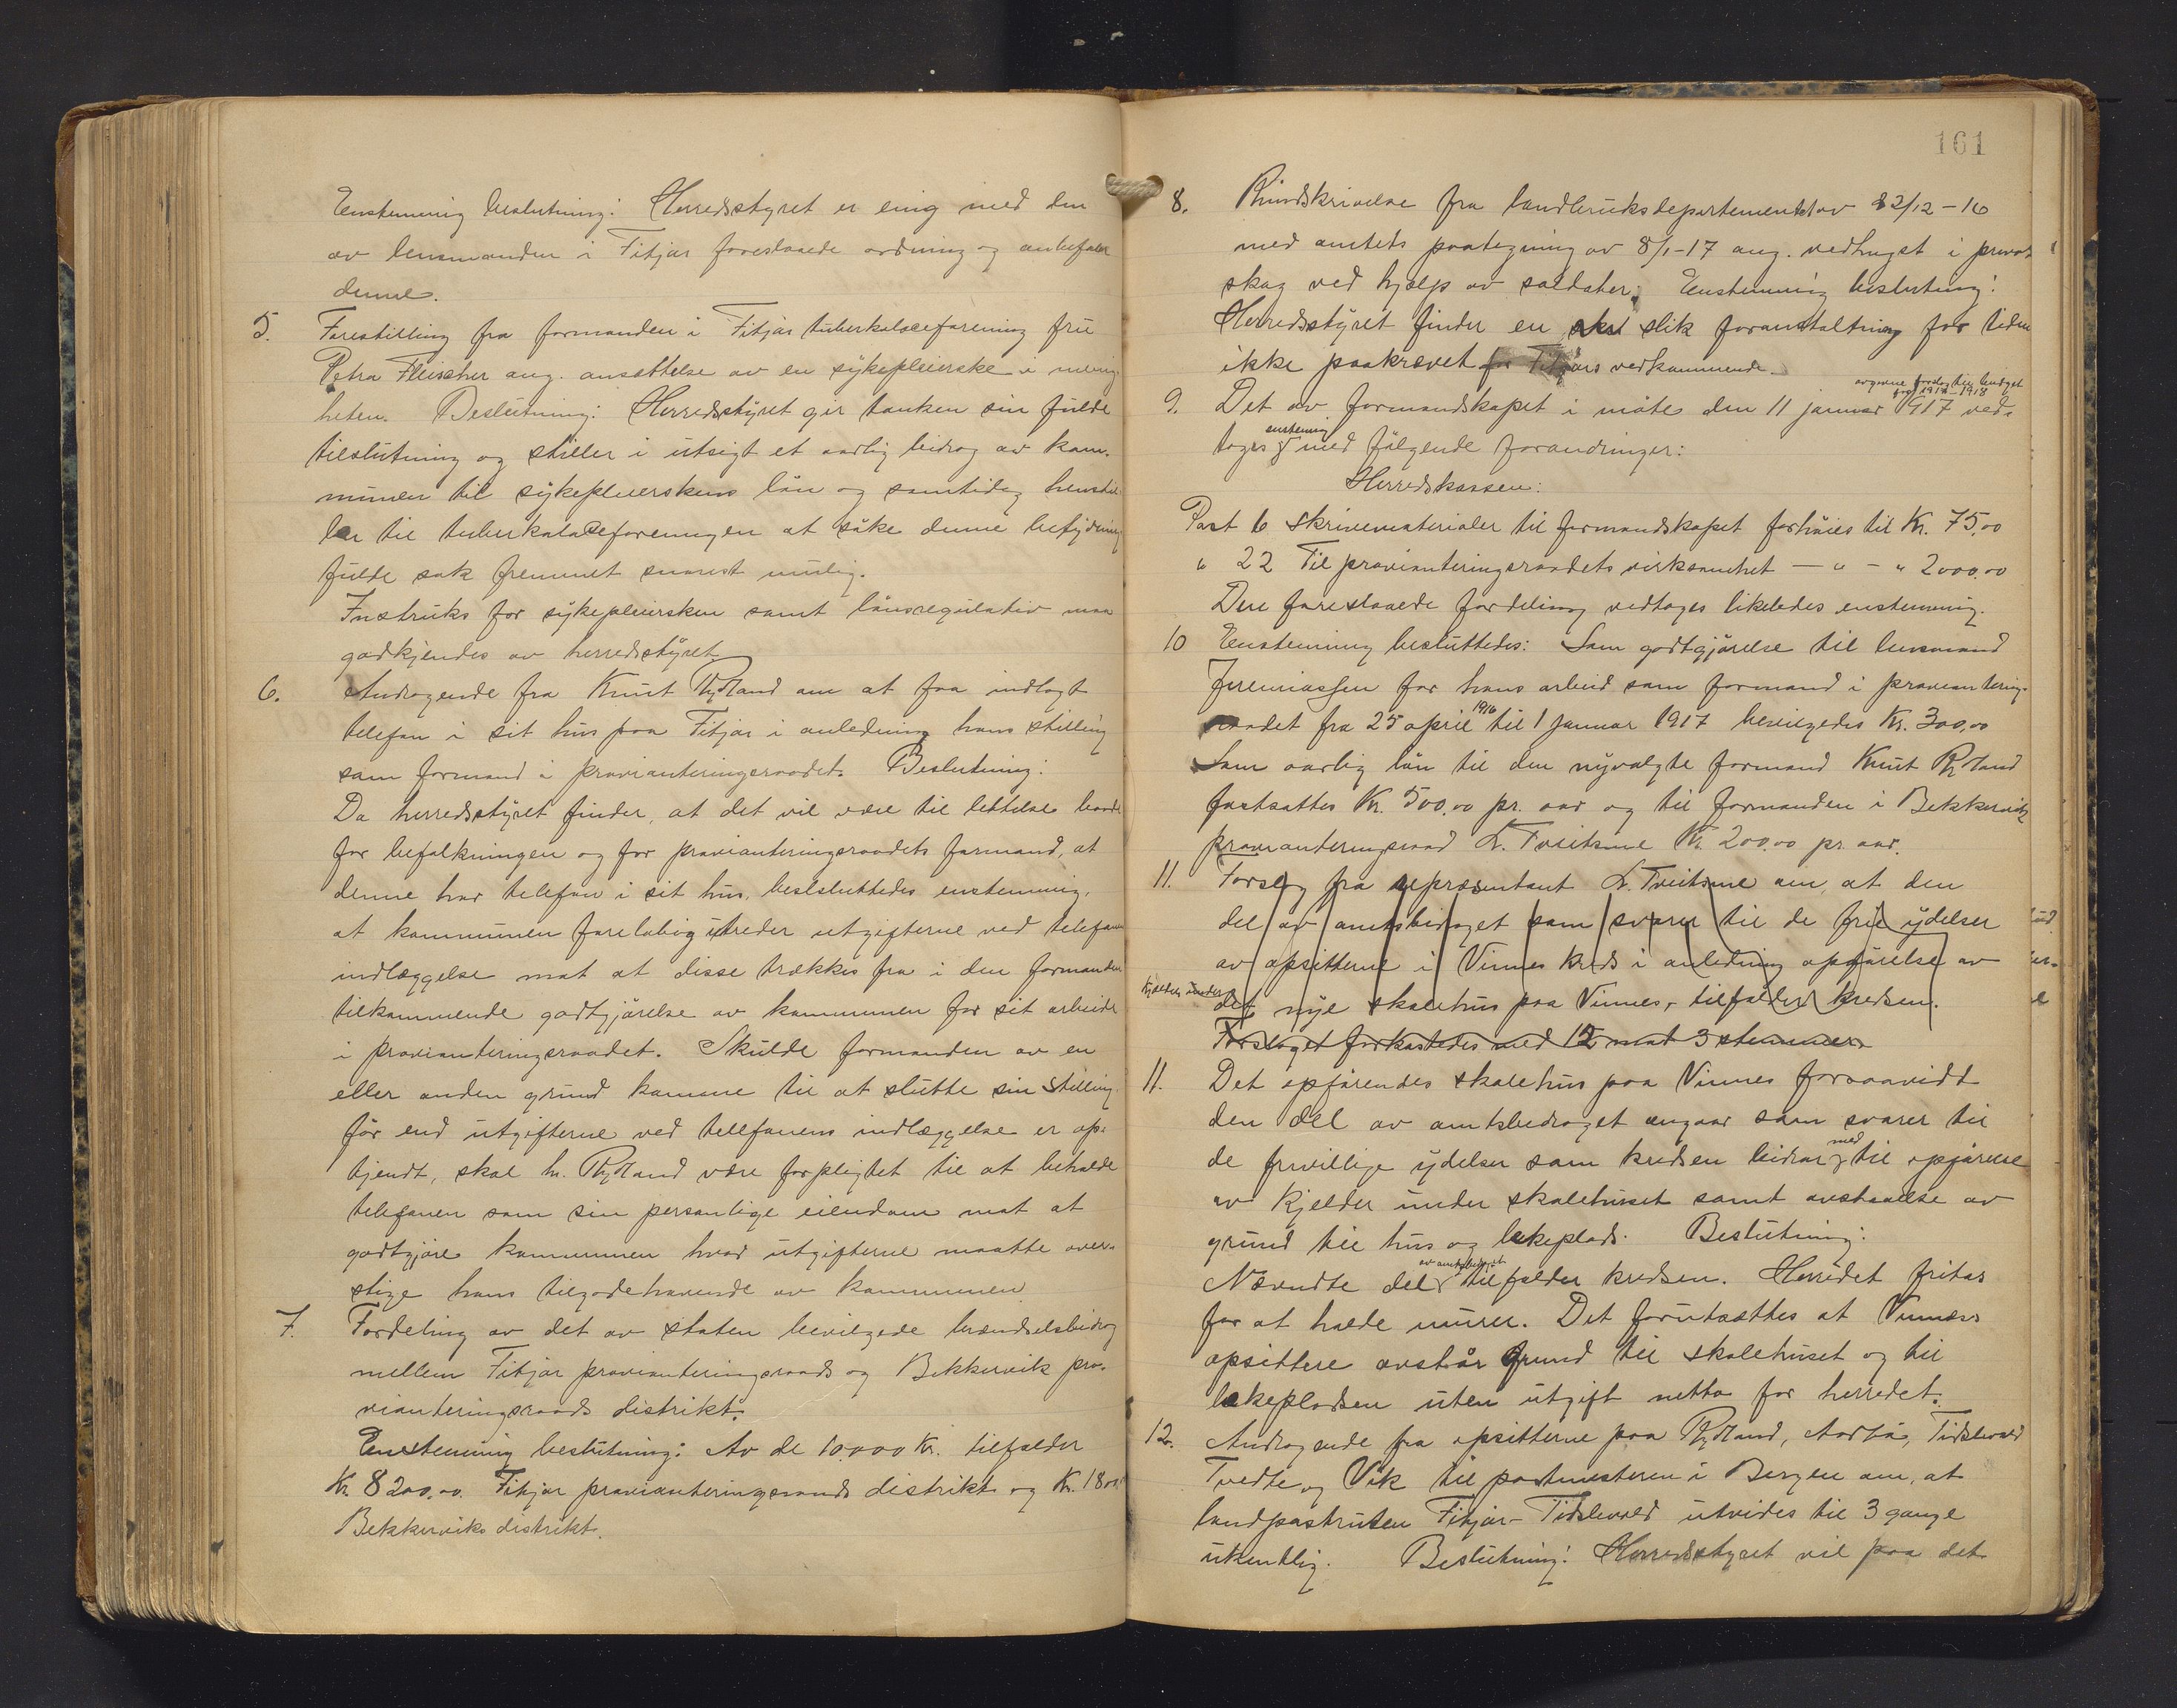 Enstemmig beslutning: Herredsstyret er enig med den
av lensmanden i Fitjar foreslaaede ordning og anbefaler
denne.
5. Forestilling fra formanden i Fitjar tuberkuloseforening frue
Petra Fleischer ang. ansættelse av en sykepleierske i menig-
heten. Beslutning: Herredsstyret gir tanken sin fulde
tilslutning og stiller i utsigt et aarlig bidrag av kom-
munen til sykepleierskens løn og samtidig henstil-
ler til tuberkuloseforeningen at søke denne betydnings
fulde sak fremmet snarest mulig.
Instruks for sykepleiersken samt lønsregulativ maa
godkjendes av herredsstyret.
6. Andragende fra Knut Rydland om at faa indlagt
telefon i sit hus paa Fitjar i anledning hans stilling
som formand i provianteringsraadet. Beslutning:
Da herredsstyret finder, at det vil være til lettelse baade
for befolkningen og for provianteringsraadets formand, at
denne har telefon i sit hus, beslsluttedes enstemmig,
at kommunen foreløbig utreder utgifterne ved telefonens
indlæggelse mot at disse trækkes fra i den formanden
tilkommende godtgjørelse av kommunen for sit arbeide
i provianteringsraadet. Skulde formanden av en
eller anden grund komme til at slutte sin stilling
før end utgifterne ved telefonens indlæggelse er op-
tjendt, skal hr. Rydland være forpligtet til at beholde
telefonen som sin personlige eiendom mot at
godtgjøre kommunen hvad utgifterne maatte over-
stige hans tilgodehavende av kommunen.
7. Fordeling av det av staten bevilgede brændselsbidrag
mellem Fitjar provianteringsraads og Bekkervik pro-
vianteringsraads distrikt.
Enstemmig beslutning: Av de 10.000 Kr. tilfalder
Kr. 8200,00 Fitjar provianteringsraads distrikt og Kr. 1800
Bekkerviks distrikt.
161
8. Rundskrivelse fra landbruksdepartementet av 22/12-16
med amtets paategning av 8/1-17 ang. vedhugst i privat
skog ved hjælp av soldater. Enstemmig beslutning:
Herredsstyret finder en slik foranstaltning for tiden
ikke paakrævet for Fitjars vedkommende.
avgivne forslag til budget
for 1917-1918
9. Det av formandskapet i møte den 11 januar 1917 ved-
enstemmig
toges med følgende forandringer:
Herredskassen:
Post 6 Skrivematerialer til formandskapet forhøies til Kr. 75,00
" 22 Til provianteringsraadets virksomhet — " — " 2000,00
Den foreslaaede fordeling vedtages likeledes enstemmig.
10 Enstemmig besluttedes: Som godtgjørelse til lensmand
Jeremiassen for hans arbeid som formand i provianterings-
raadet fra 25 april 1916 til 1 januar 1917 bevilgedes Kr. 300,00
Som aarlig løn til den nyvalgte formand Knut Rydland
fastsattes Kr. 500,00 pr. aar og til formanden i Bekkervik
provianteringsraad L. Tveitane Kr. 200,00 pr. aar.
11. Forslag fra repræsentant L. Tveitane om, at den
del av amtsbidraget som svarer til de frie ydelser
av opsitterne i Vinnes kreds i anledning opførelse av
kjelder under
det nye skolehus paa Vinnes, tilfalder kredsen.
Forslaget forkastedes med 12 mot 3 stemmer.
11. Det opførendes skolehus paa Vinnes forsaavidt
den del av amtsbidraget angaar som svarer til
de frivillige ydelser som kredsen bidrar med til opførelse
av kjelder under skolehuset samt avstaaelse av
grund til hus og lekeplads. Beslutning:
av amtsbidraget
Nævndte del tilfalder kredsen. Herredet fritas
for at holde murer. Det forutsættes at Vinnes
opsittere avstår grund til skolehuset og til
lekepladsen uten utgift netto for herredet.
12. Andragende fra opsitterne paa Rydland, Aarbø, Tidslevold
Tvedte og Vik til postmesteren i Bergen om, at
landpostruten Fitjar-Tidslevold utvides til 3 gange
ukentlig. Beslutning: Herredsstyret vil paa det